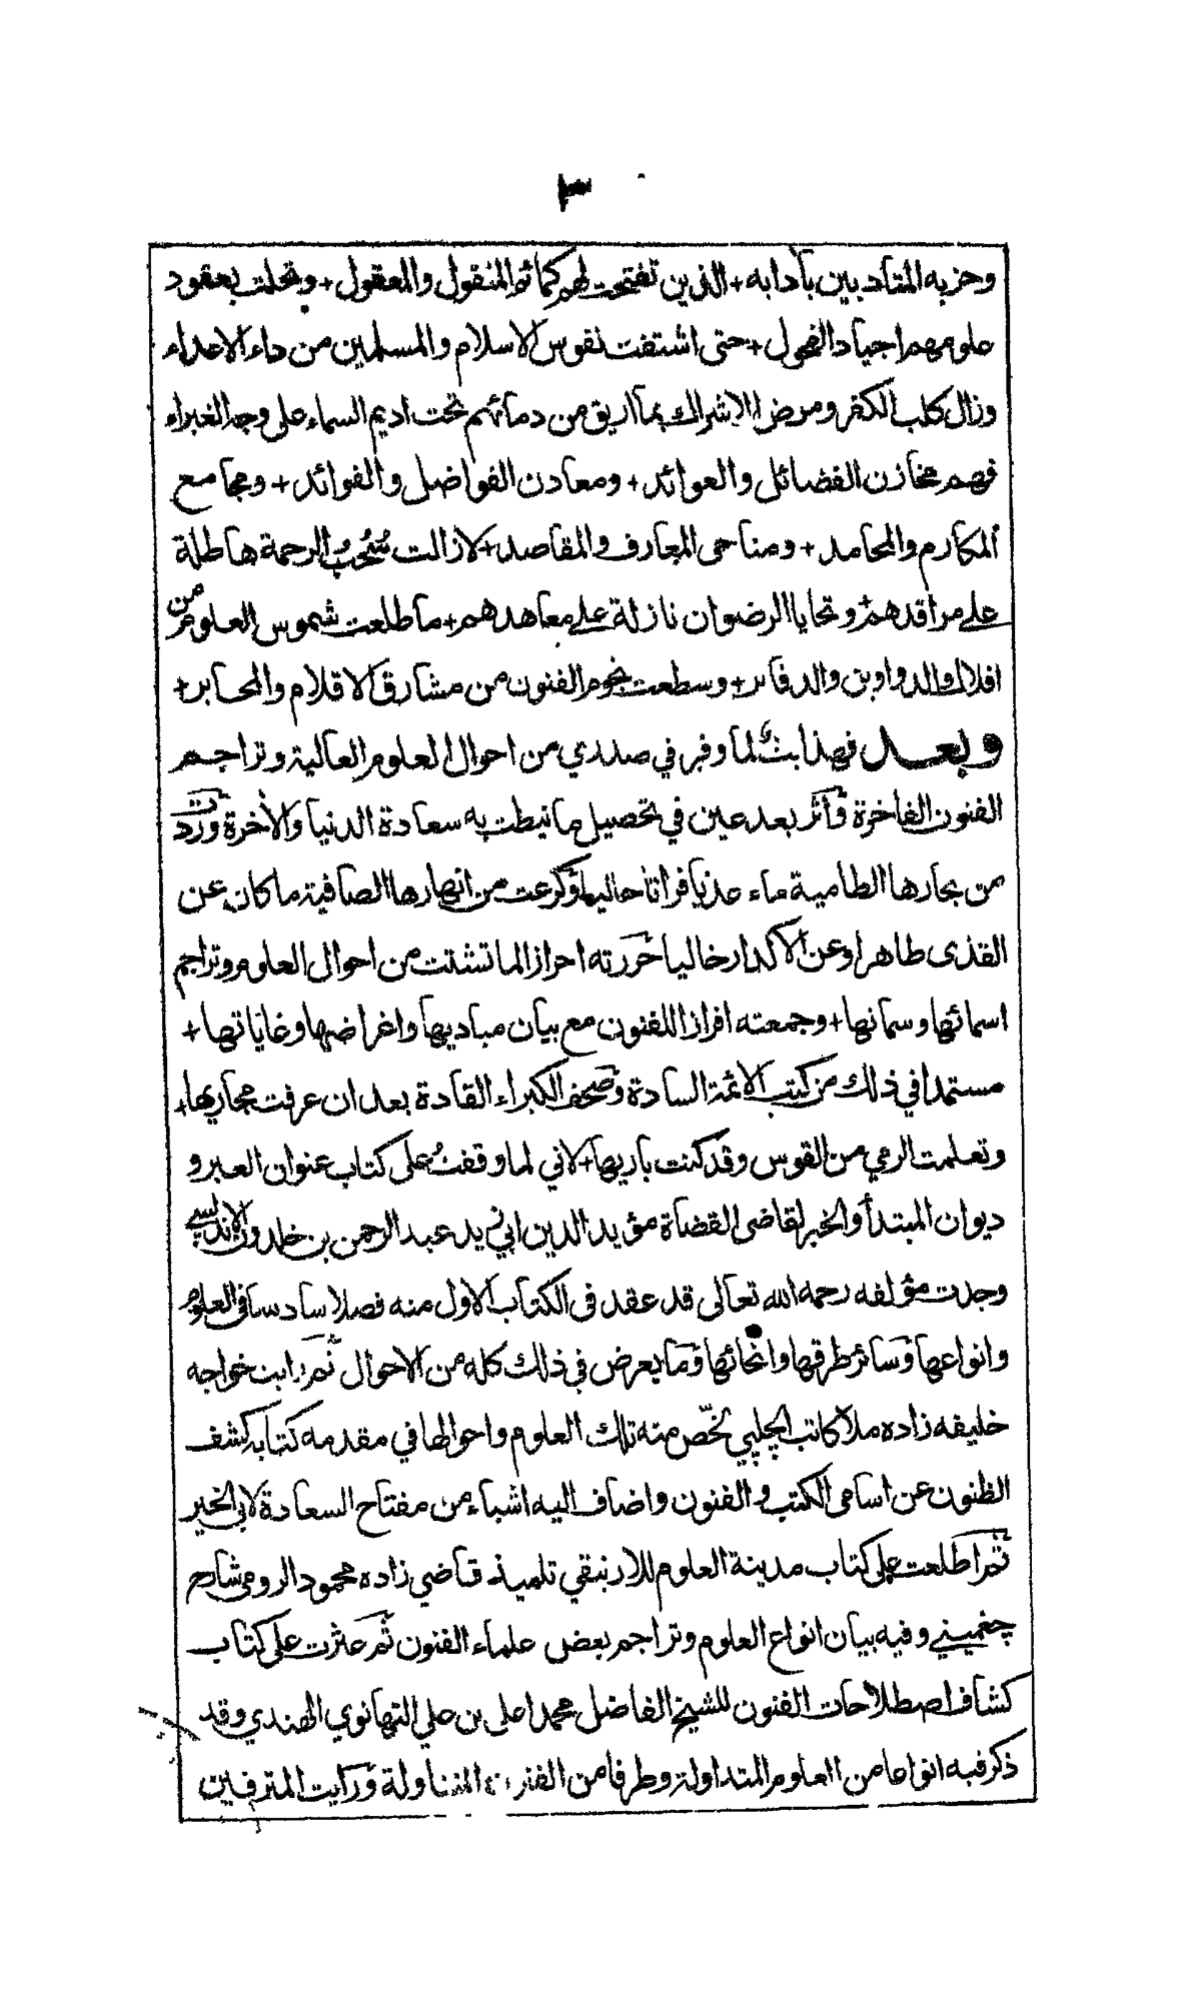 ٣
وحزبه المتادبين بآدابه + الذين تفتحت لهم كمائم المنقول والمعقول + وتحلت بعقود
علومهم اجياد الفحول + حتى اشتفت نفوس الاسلام والمسلمين من داء الاعداء
وزال كلب الكفر ومرض الاشراك بما اريق من دمائهم تحت اديم السماء على وجه الغبراء
فهم مخازن الفضائل والعوائد + ومعادن الفواضل والفوائد + ومجامع
المكارم والمحامد + ومناحي المعارف والمقاصد + لازالت سُحُبُ الرحمة هاطلة
على مراقدهم + وتحايا الرضوان نازلة على معاهدهم + ما طلعت شموس العلوم من
افلاك الدواوين والدفاتر + وسطعت نجوم الفنون من مشارق الاقلام والمحابر +
وبعد فهذا بث لما وقر في صدري من احوال العلوم العالية وتراجم
الفنون الفاخرة وآثر بعد عين في تحصيل ما نيطت به سعادة الدنيا والآخرة وردت
من بحارها الطامية ماء عذبا فراتا حاليا وكرعت من انهارها الصافية ما كان عن
القذى طاهرا وعن الاكدار خاليا حررته احرازا لما تشتت من احوال العلوم وتراجم
اسمائها وسمانها + وجمعته افرازا للفنون مع بيان مباديها واغراضها وغاياتها +
مستمدا في ذلك من كتب الائمة السادة وصحف الكبراء القادة بعد ان عرفت مجاريها +
وتعلمت الرمي من القوس وقد كنت باريها + لاني لما وقفتُ على كتاب عنوان العبر و
ديوان المبتدأ والخبر لقاضى القضاة مؤيد الدين ابي زيد عبد الرحمن بن خلدون الاندلسي
وجدت مؤلفه رحمه الله تعالى قد عقد فى الكتاب الاول منه فصلا سادسا فى العلوم
وانواعها وسائر طرقها وانحائها وما يعرض في ذلك كله من الاحوال ثم رايت خواجه
خليفه زاده ملا كاتب الچلپي لخّص منه تلك العلوم واحوالها في مقدمه كتابه كشف
الظنون عن اسامى الكتب والفنون واضاف اليه اشياء من مفتاح السعادة لابى الخير
ثم اطلعت على كتاب مدينة العلوم للارنيقي تلميذ قاضي زاده محمود الرومى شارح
چغميني وفيه بيان انواع العلوم وتراجم بعض علماء الفنون ثم عثرت على كتاب
كشاف اصطلاحات الفنون للشيخ الفاضل محمد اعلى بن علي التهانوي الهندي وقد
ذكر فيه انواعا من العلوم المتداولة وطرفا من الفنون المتناولة ورايت المترفين